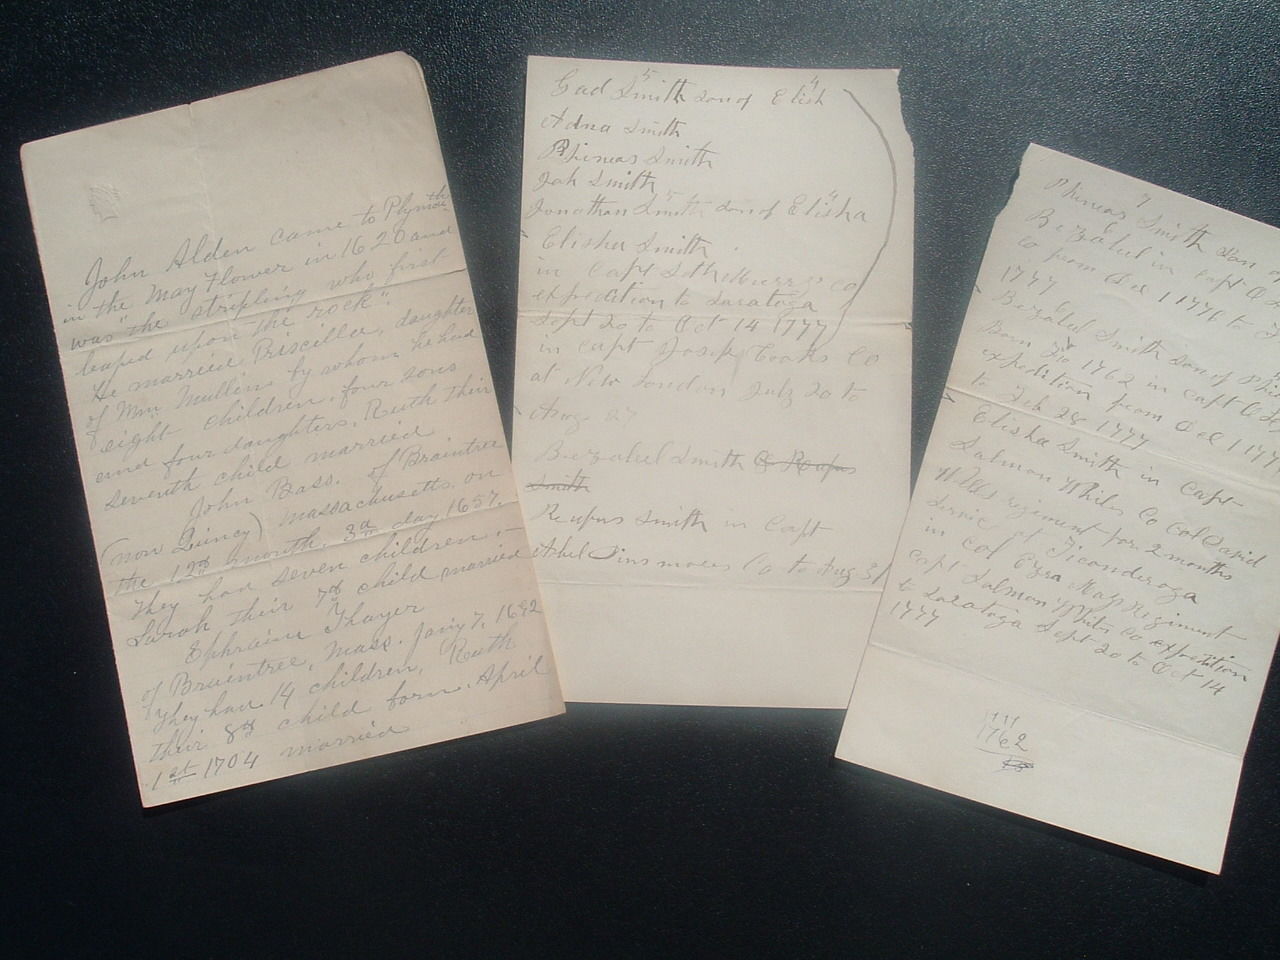 John Alden came to Plymouth
in the May Flower in 1620 and
was "the stripling who first
leaped upon the rock".
He married Priscilla, daughter
of Wm Mullins by whom he had
eight children, four sons
and four daughters. Ruth their
seventh child married
John Bass. of Braintree
(now Quincy) Massachusetts on
the 12th month, 3d day 1657.
They had seven children.
Sarah their 7th child married
Ephraim Thayer
of Braintree, Mass. Jany 7, 1692
They had 14 children, Ruth
their 8th child born. April
1st 1704 married
Gad 5 Smith son of Elish 4
Adna Smith
Phineas Smith
Jah Smith
Jonathan Smith 5 son of Elisha 4
Elisha Smith
in Capt Co
expedition to Saratoga
Sept 20 to Oct 14 1777
in Capt Joseph Cooks Co
at New London July 20 to
Aug 27
Bezalel Smith & Rufus
Smith
Rufus Smith in Capt
Abel Dinsmores Co to Aug 31
Phineas Smith Son
Bezaleel in Capt
to from Dec 1 1776 to
1777
Bezalel Smith son of Phi
Born 1762 in Capt
expedition from Dec 1 177
to Feb 28 1777
Elisha Smith in Capt
Salmon Whites Co Col David
Wells regiment for 2 months
service at Ticonderoga
in Col Ezra Mays Regiment
Capt Salmon Whites Co expedition
to Saratoga Sept 20 to Oct 14
1777
1762